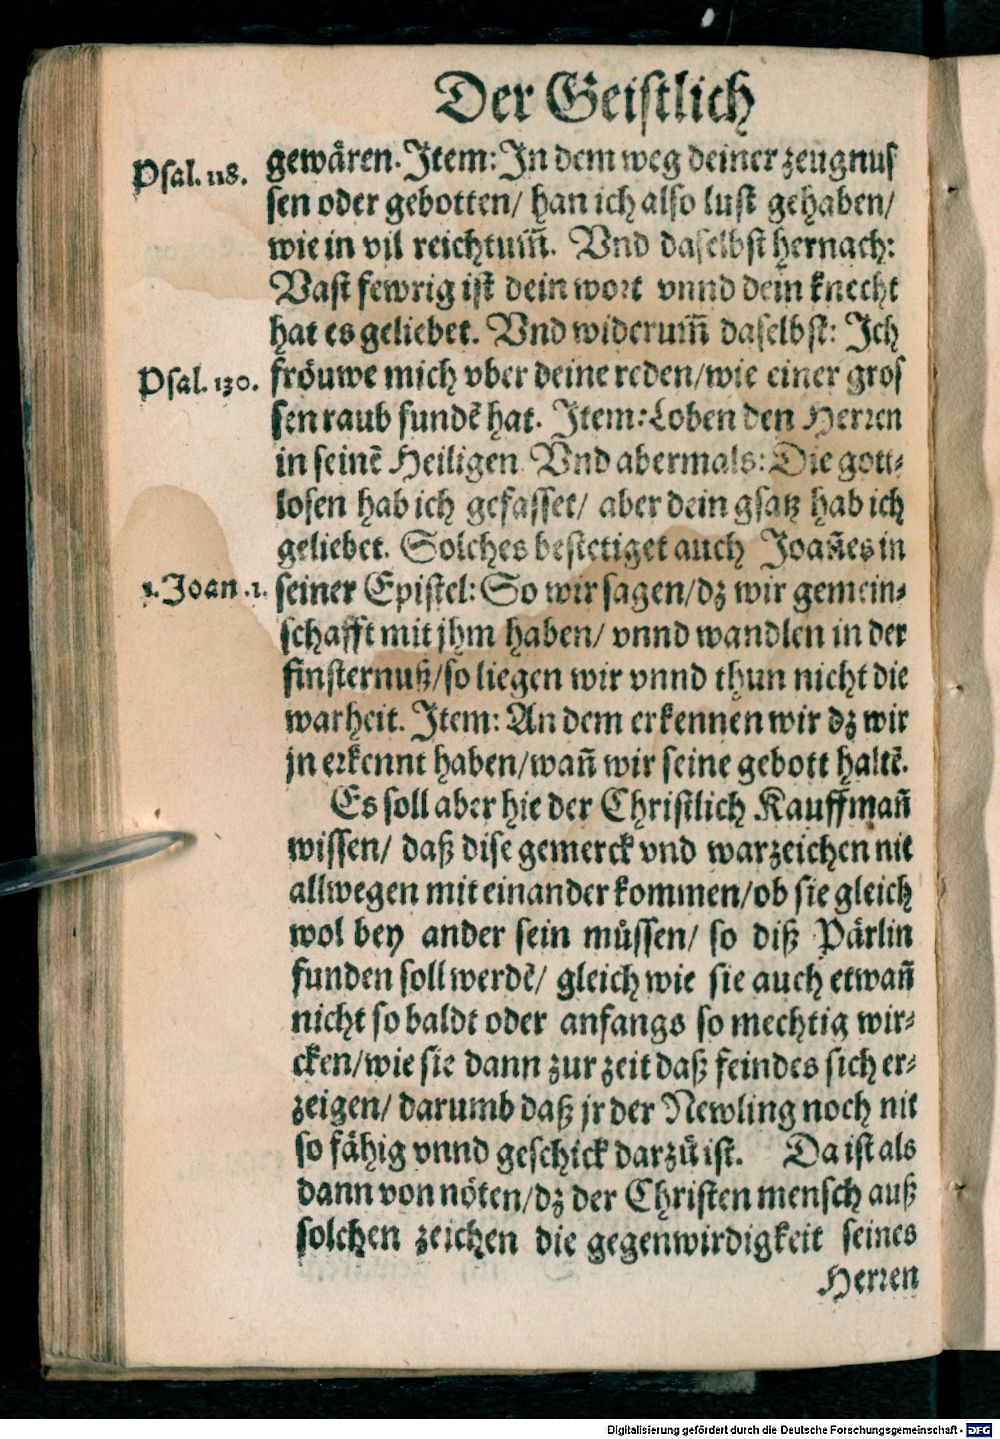 Der Geistlich
Psal. 118.
gewären. Item: In dem weg deiner zeugnus
sen oder gebotten/ han ich also lust gehaben/
wie in vil reichtum̃. Vnd daselbst hernach:
Vast fewrig ist dein wort vnnd dein knecht
hat es geliebet. Vnd widerum̃ daselbst: Ich
Psal. 130.
fröuwe mich vber deine reden/wie einer gros
sen raub fundẽ hat. Item: Loben den Herren
in seinẽ Heiligen Vnd abermals: Die gott-
losen hab ich gefasset/ aber dein gsatz hab ich
geliebet. Solches bestetiget auch Joañes in
1. Joan. 1.
seiner Epistel: So wir sagen/dz wir gemein-
schafft mit jhm haben/ vnnd wandlen in der
finsternuß/so liegen wir vnnd thun nicht die
warheit. Item: An dem erkennen wir dz wir
jn erkennt haben/wañ wir seine gebott haltẽ.
Es soll aber hie der Christlich Kauffmañ
wissen/ daß dise gemerck vnd warzeichen nit
allwegen mit einander kommen/ob sie gleich
wol bey ander sein müssen/ so diß Pärlin
funden soll werdẽ/ gleich wie sie auch etwañ
nicht so baldt oder anfangs so mechtig wir-
cken/wie sie dann zur zeit daß feindes sich er-
zeigen/ darumb daß jr der Newling noch nit
so fähig vnnd geschick darzů ist. Da ist als
dann von nöten/dz der Christen mensch auß
solchen zeichen die gegenwirdigkeit seines
Herren
Digitalisierung gefördert durch die Deutsche Forschungsgemeinschaft - DFG